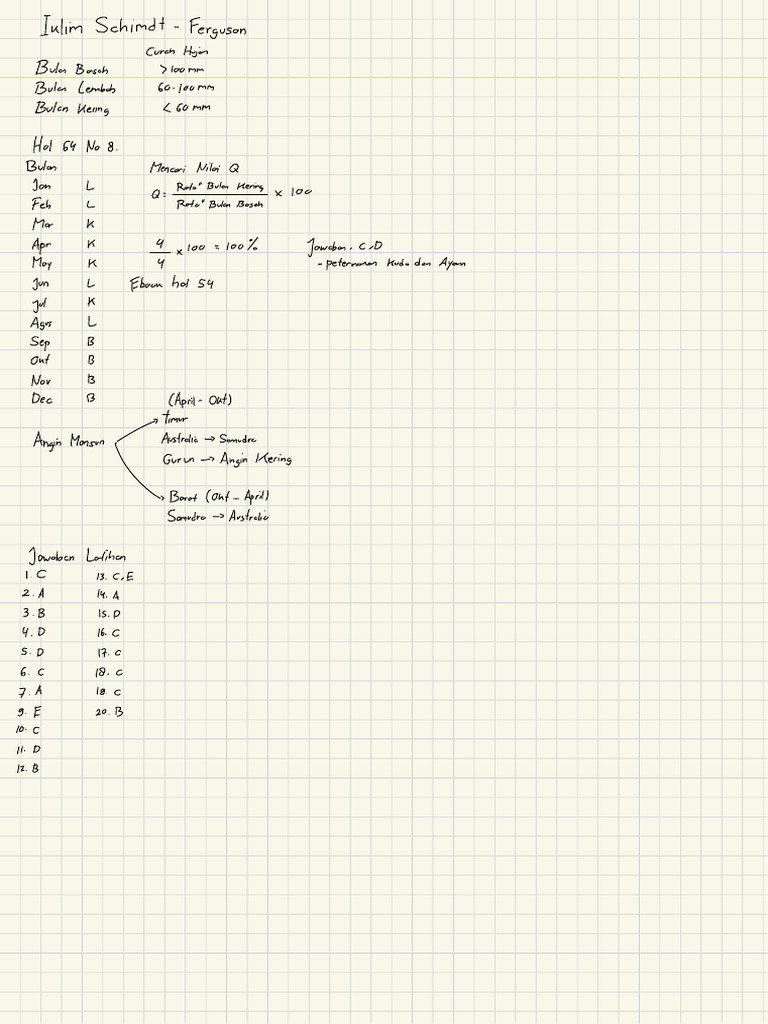 Iulim Schimdt - Ferguson
Curah Hujan
Bulan Basah > 100 mm
Bulan Lembab 60-100 mm
Bulan Kering < 60 mm
Hal 64 No 8.
Bulan
Mencari Nilai Q
Jan L
Feb L
Q = Rata" Bulan Kering / Rata" Bulan Basah × 100
Mar K
Apr K
May K
4 / 4 × 100 = 100%
Jawaban. C,D
- peternakan Kuda dan Ayam
Jun L
Ebook hal 54
Jul K
Agus L
Sep B
Out B
Nov B
Dec B
(April - Out)
Angin Monsun
Timur
Australia → Samudra
Gurun → Angin Kering
Barat (Out - April)
Samudra → Australia
Jawaban Latihan
1. C
2. A
3. B
4. D
5. D
6. C
7. A
9. E
10. C
11. D
12. B
13. C,E
14. A
15. D
16. C
17. C
18. C
19. C
20. B